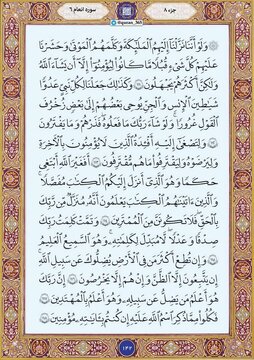 جزء ۸
@quran_365
سوره انعام ۶
وَلَوْ أَنَّنَا نَزَّلْنَا إِلَيْهِمُ الْمَلَائِكَةَ وَكَلَّمَهُمُ الْمَوْتَىٰ وَحَشَرْنَا
عَلَيْهِمْ كُلَّ شَيْءٍ قُبُلًا مَا كَانُوا لِيُؤْمِنُوا إِلَّا أَنْ يَشَاءَ اللَّهُ
وَلَٰكِنَّ أَكْثَرَهُمْ يَجْهَلُونَ ۝ وَكَذَٰلِكَ جَعَلْنَا لِكُلِّ نَبِيٍّ عَدُوًّا
شَيَاطِينَ الْإِنْسِ وَالْجِنِّ يُوحِي بَعْضُهُمْ إِلَىٰ بَعْضٍ زُخْرُفَ
الْقَوْلِ غُرُورًا وَلَوْ شَاءَ رَبُّكَ مَا فَعَلُوهُ فَذَرْهُمْ وَمَا يَفْتَرُونَ
۝ وَلِتَصْغَىٰ إِلَيْهِ أَفْئِدَةُ الَّذِينَ لَا يُؤْمِنُونَ بِالْآخِرَةِ
وَلِيَرْضَوْهُ وَلِيَقْتَرِفُوا مَا هُمْ مُقْتَرِفُونَ ۝ أَفَغَيْرَ اللَّهِ أَبْتَغِي
حَكَمًا وَهُوَ الَّذِي أَنْزَلَ إِلَيْكُمُ الْكِتَابَ مُفَصَّلًا
وَالَّذِينَ آتَيْنَاهُمُ الْكِتَابَ يَعْلَمُونَ أَنَّهُ مُنَزَّلٌ مِنْ رَبِّكَ
بِالْحَقِّ فَلَا تَكُونَنَّ مِنَ الْمُمْتَرِينَ ۝ وَتَمَّتْ كَلِمَتُ رَبِّكَ
صِدْقًا وَعَدْلًا لَا مُبَدِّلَ لِكَلِمَاتِهِ وَهُوَ السَّمِيعُ الْعَلِيمُ
۝ وَإِنْ تُطِعْ أَكْثَرَ مَنْ فِي الْأَرْضِ يُضِلُّوكَ عَنْ سَبِيلِ اللَّهِ
إِنْ يَتَّبِعُونَ إِلَّا الظَّنَّ وَإِنْ هُمْ إِلَّا يَخْرُصُونَ ۝ إِنَّ رَبَّكَ
هُوَ أَعْلَمُ مَنْ يَضِلُّ عَنْ سَبِيلِهِ وَهُوَ أَعْلَمُ بِالْمُهْتَدِينَ ۝
فَكُلُوا مِمَّا ذُكِرَ اسْمُ اللَّهِ عَلَيْهِ إِنْ كُنْتُمْ بِآيَاتِهِ مُؤْمِنِينَ ۝
۱۴۲